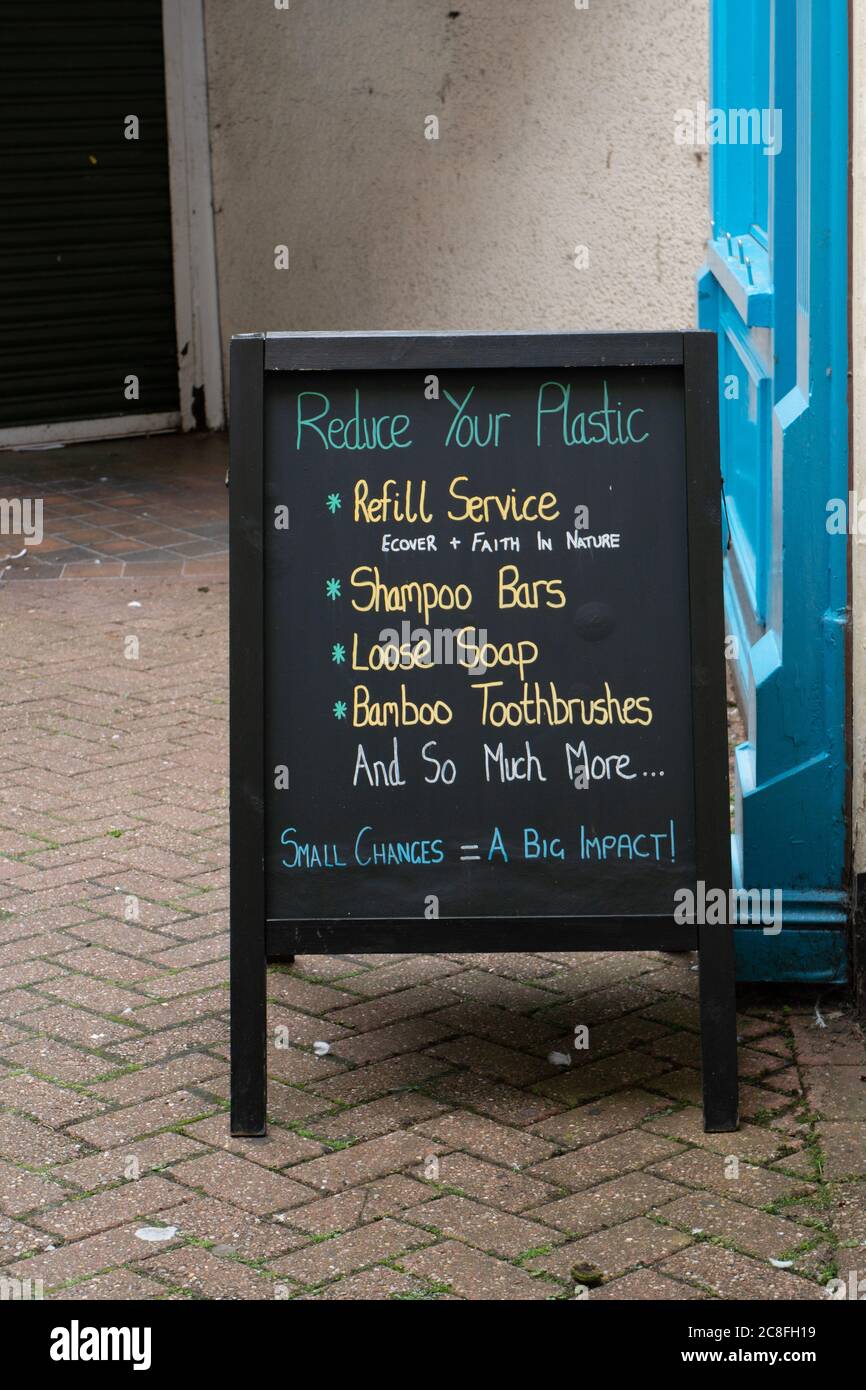 Reduce Your Plastic
* Refill Service
ECOVER + FAITH IN NATURE
* Shampoo Bars
* Loose Soap
* Bamboo Toothbrushes
And So Much More...
SMALL CHANGES = A BIG IMPACT!
alamy
Image ID: 2C8FH19
www.alamy.com